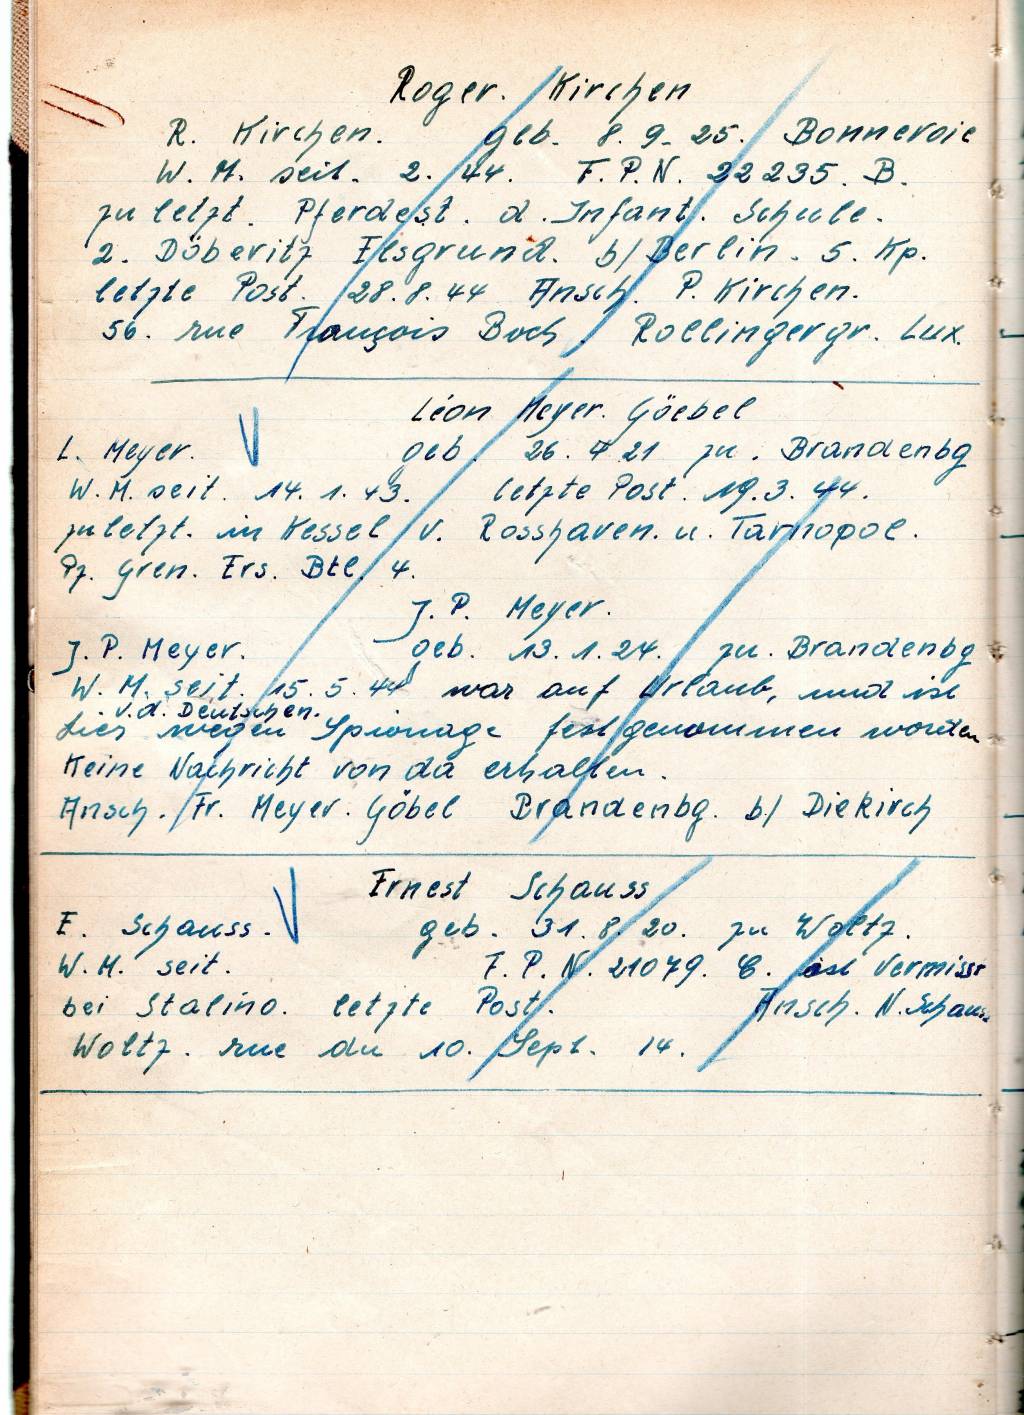 Roger. Kirchen
R. Kirchen. geb. 8. 9. 25. Bonnevoie
W. M. seit. 2. 44. F. P. N. 22235. B.
zuletzt. Pferdest. d. Infant. Schule.
2. Döberitz Elsgrund. b/ Berlin. 5. Kp.
letzte Post. 28. 8. 44 Ansch. P. Kirchen.
56. rue François Boch. Rollingergr. Lux.
Léon Meyer. Göebel
L. Meyer. geb. 26. 4 21 zu. Brandenbg
W. M. seit. 14. 1. 43. letzte Post. 19. 3. 44.
zuletzt. in Kessel v. Rosshaven. u. Tarnopol.
Pz. Gren. Ers. Btl. 4.
J. P. Meyer.
J. P. Meyer. geb. 13. 1. 24. zu. Brandenbg
W. M. seit. 15. 5. 44 war auf Urlaub, und ist
v. d. Deutschen.
hier wegen Spionage festgenommen worden
Keine Nachricht von da erhalten.
Ansch. Fr. Meyer. Göbel Brandenbg. b/ Diekirch
Ernest Schauss
E. Schauss. geb. 31. 8. 20. zu Woltz.
W. M. seit. F. P. N. 21079. C. ist vermisst
bei Stalino. letzte Post. Ansch. N. Schauss
Woltz. rue du 10. Sept. 14.